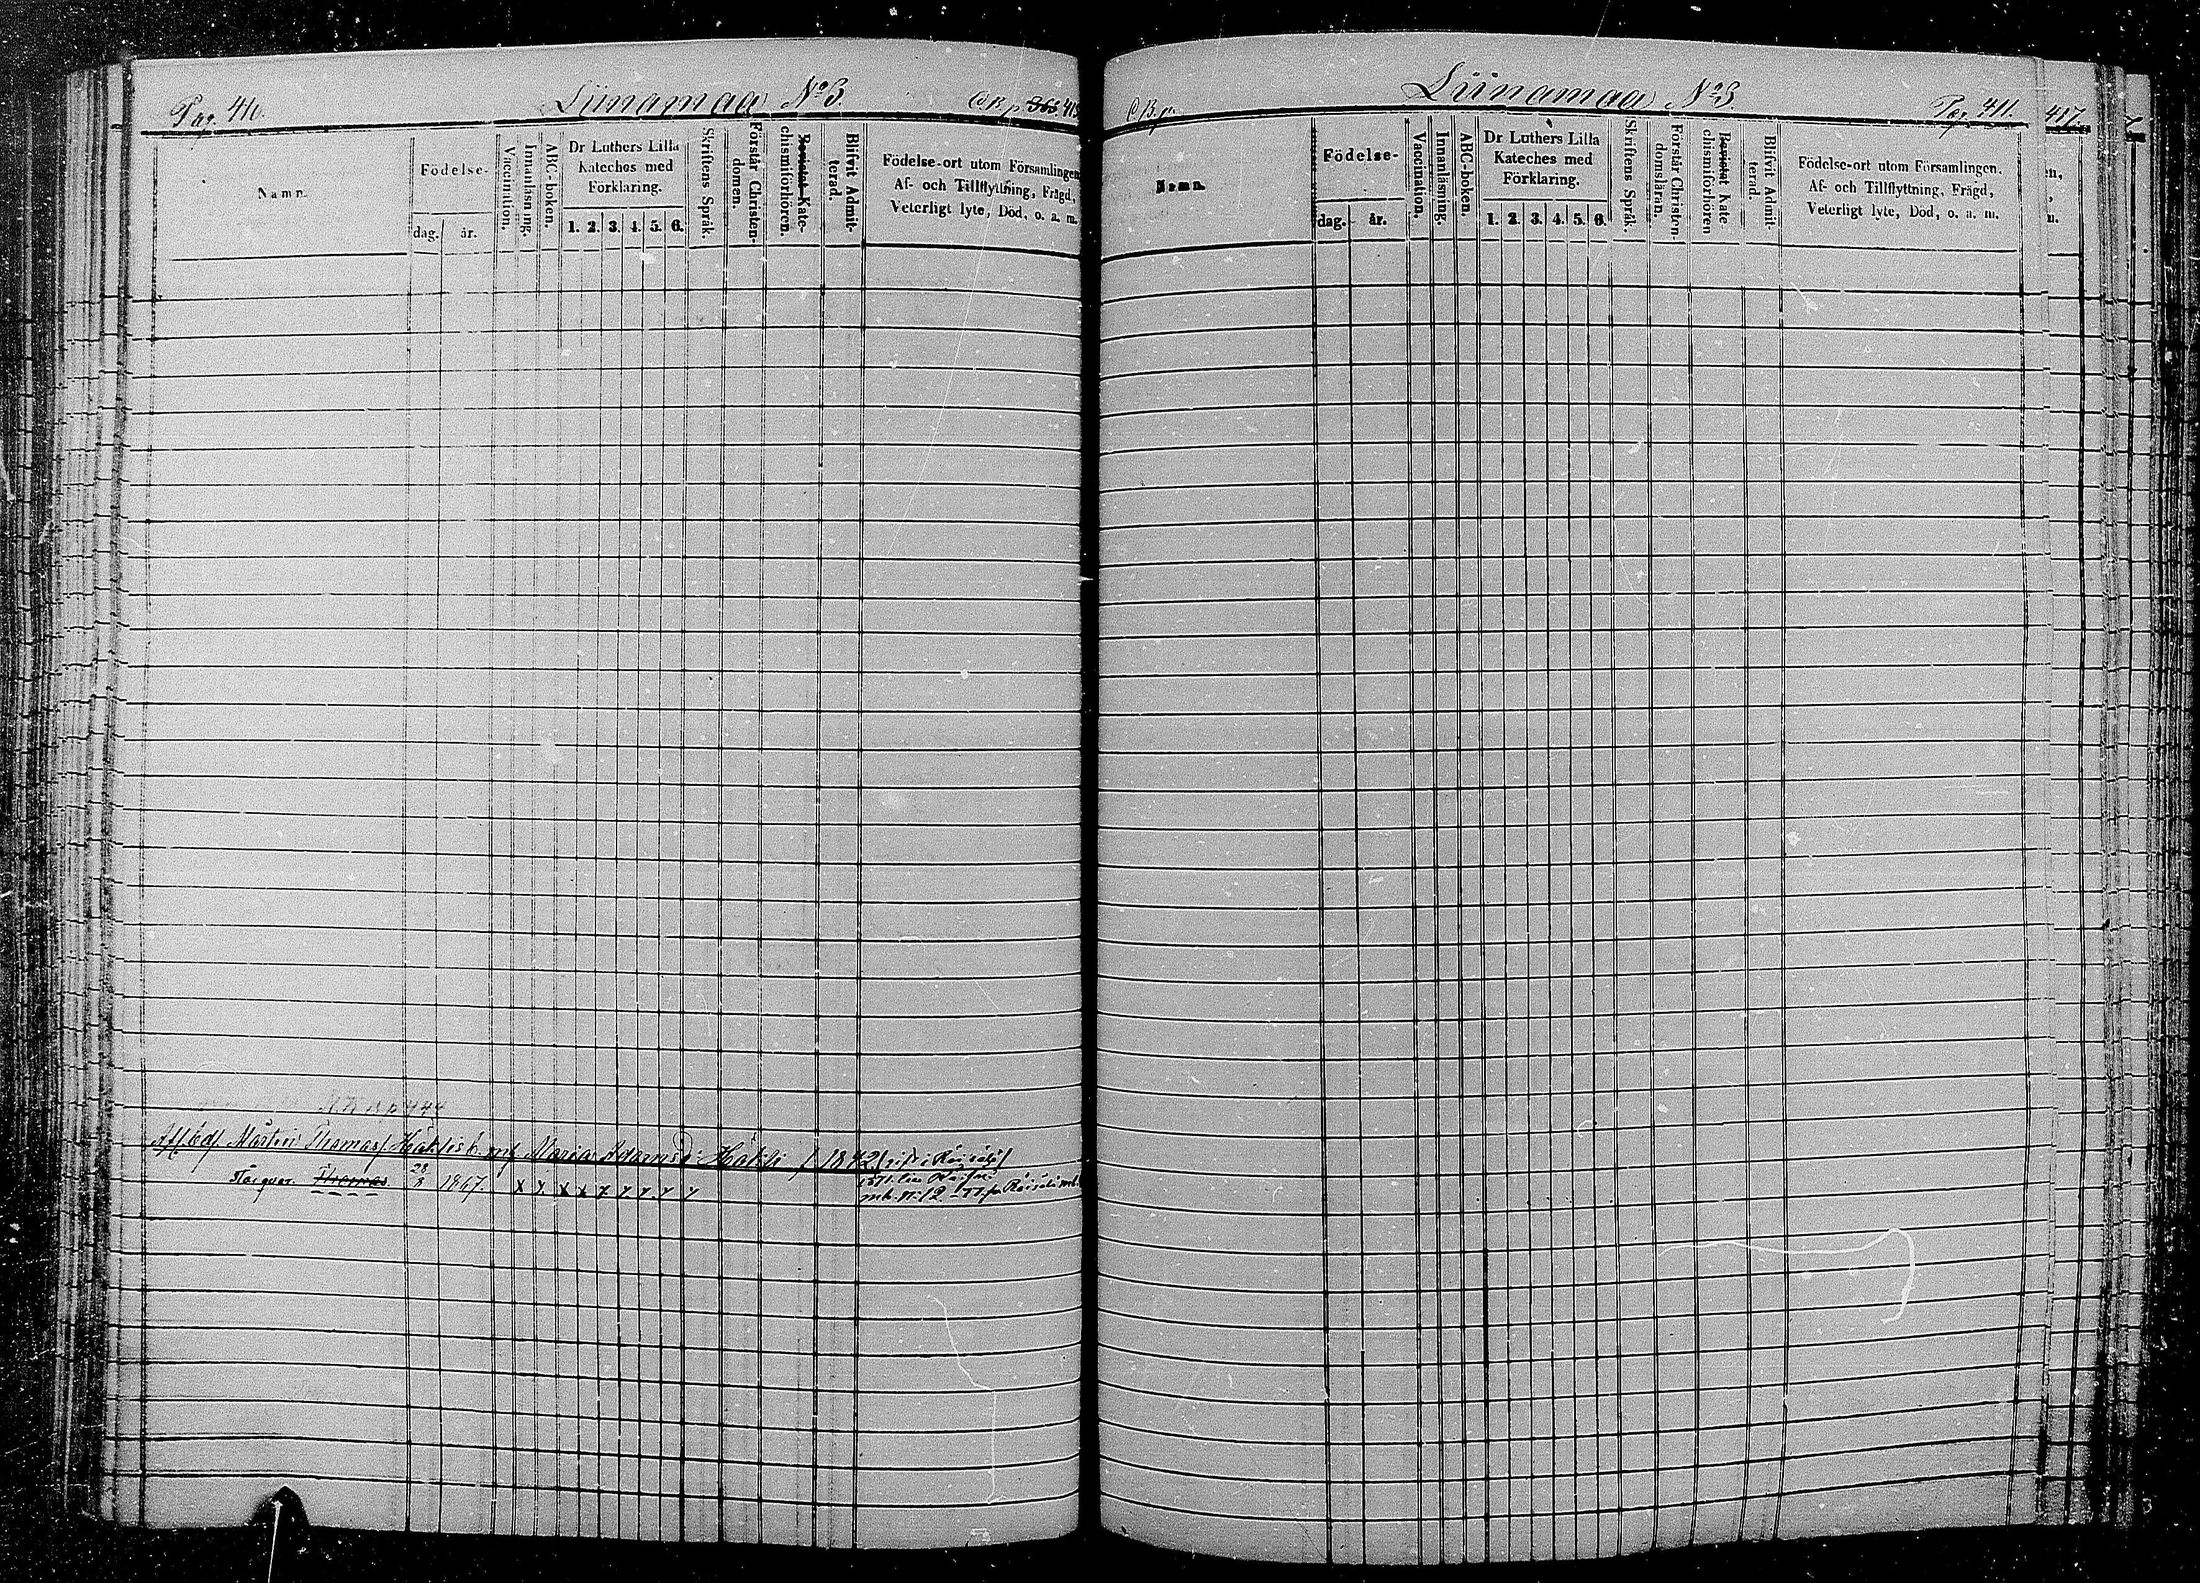 Pag. 410.
Liinamaa No 3.
C B p 365 413
Namn.
Födelse-
dag.
år.
Vaccination.
Innanläsning.
ABC-boken.
Dr Luthers Lilla
Kateches med
Förklaring.
1. 2. 3. 4. 5. 6.
Skriftens Språk.
Förstår Christen-
domen.
Bevistat Kate-
chismiförhören.
Blifvit Admit-
terad.
Födelse-ort utom Församlingen,
Af- och Tillflyttning, Frägd,
Veterligt lyte, Död, o. a. m.
Mårten Thomas Maria Adamsd: Häkli 1872
Thomas 28/8 1867. x x x x x x x x x
C B p.
Liinamaa No 3
Pag. 411.
417.
Namn.
Födelse-
dag.
år.
Vaccination.
Innanläsning.
ABC-boken.
Dr Luthers Lilla
Kateches med
Förklaring.
1. 2. 3. 4. 5. 6.
Skriftens Språk.
Förstår Christen-
domsläran.
Bevistat Kate
chismiförhören
Blifvit Admit-
terad.
Födelse-ort utom Församlingen.
Af- och Tillflyttning, Frägd,
Veterligt lyte, Död, o. a. m.